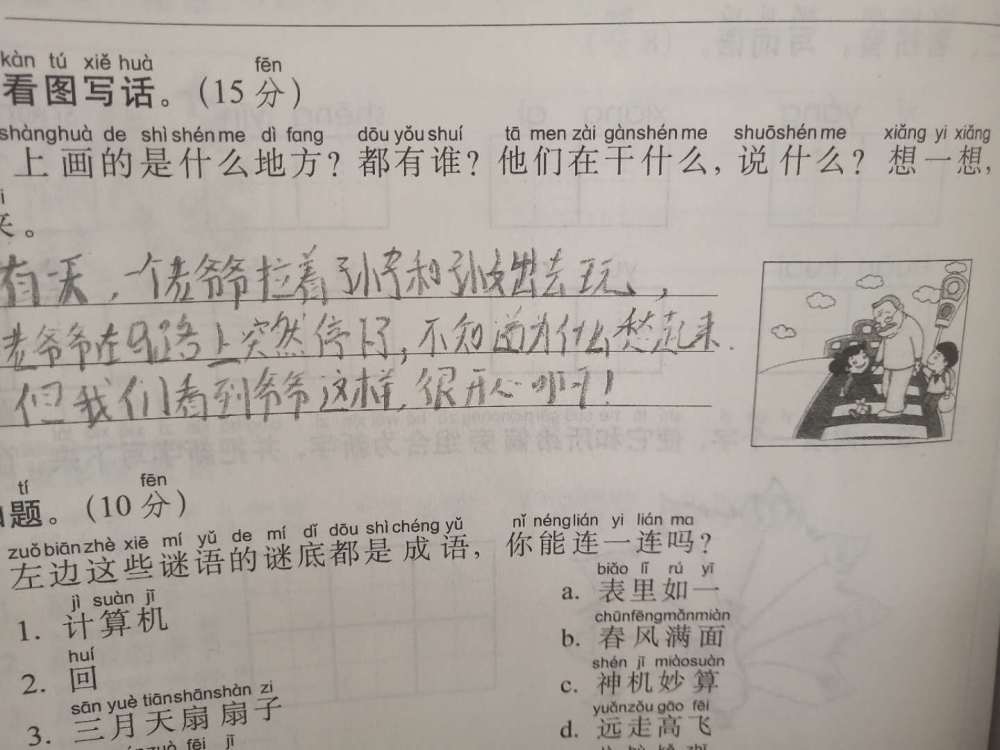 kàn tú xiě huà fēn
看图写话。（15分）
shàng huà de shì shén me dì fang dōu yǒu shuí tā men zài gàn shén me shuō shén me xiǎng yi xiǎng
上画的是什么地方？都有谁？他们在干什么，说什么？想一想，
来。
有一天，一个老爷爷拉着孙子和孙女出去玩，
老爷爷在马路上突然停下，不知道为什么愁起来.
但我们看到爷爷这样，很开心
tí fēn
题。（10分）
zuǒ biān zhè xiē mí yǔ de mí dǐ dōu shì chéng yǔ nǐ néng lián yi lián ma
左边这些谜语的谜底都是成语，你能连一连吗？
jì suàn jī
1. 计算机
huí
2. 回
sān yuè tiān shān shàn zi
3. 三月天扇扇子
biǎo lǐ rú yī
a. 表里如一
chūn fēng mǎn miàn
b. 春风满面
shén jī miào suàn
c. 神机妙算
yuǎn zǒu gāo fēi
d. 远走高飞